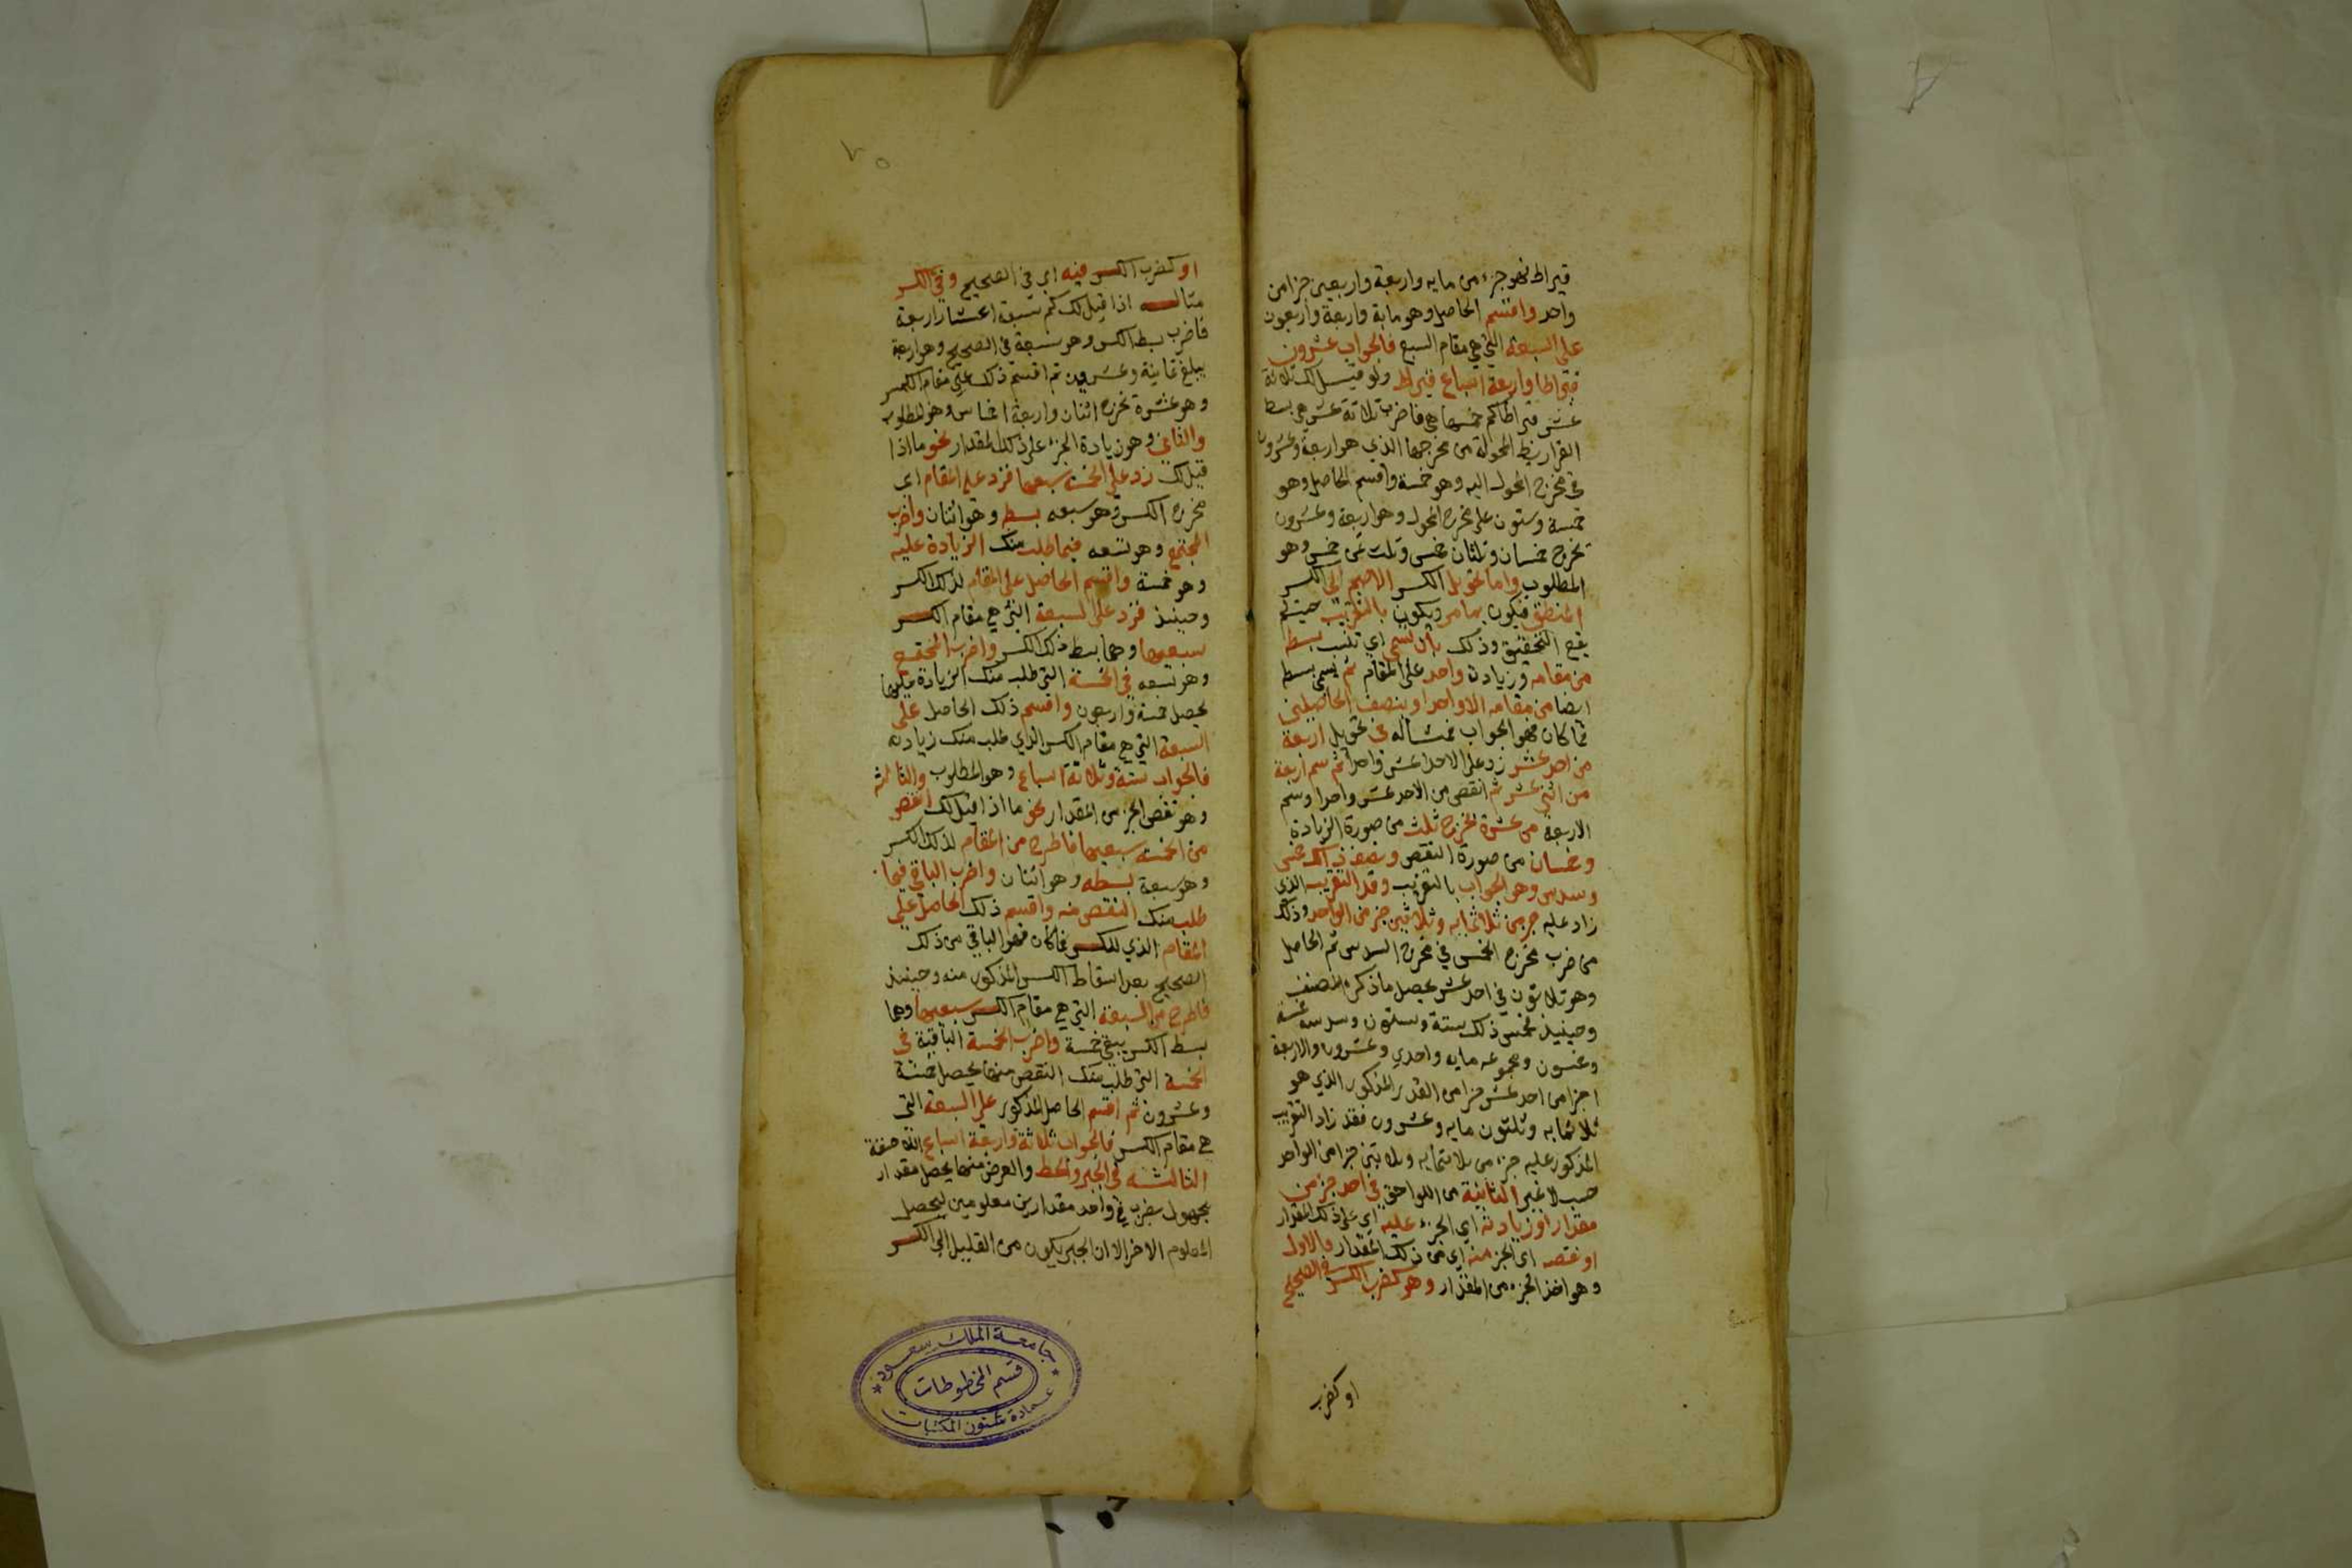 قيراط فهو جزء من مايه واربعة واربعين جزا من
واحد واقسم الحاصل وهو ماية واربعة واربعون
على السبعة التي هي مقام السبع فالجواب عشرون
قيراطا واربعة اسباع قيراط ولو قيل لك ثلاثة
عشر قيراطا كم خمسا هي فاضرب ثلاثة عشر هي بسط
القراريط المحولة من مخرجها الذي هو اربعة وعشرون
في مخرج المحول اليه وهو خمسة واقسم الحاصل وهو
خمسة وستون على مخرج المحول وهو اربعة وعشرون
تخرج خمسان وثلثان خمس وثلث ثمن خمس وهو
المطلوب واما تحويل الكسر الاصم الى الكسر
المنطق فيكون بما مر ويكون بالتقريب حيث لم
يقع التحقيق وذلك بان تسمي اي تنسب بسطه
من مقامه وزيادة واحد على المقام ثم يسمى بسطه
ايضا من مقامه الا واحدا وبنصف الحاصلين
فما كان فهو الجواب فمثاله في تحويل اربعة
من احد عشر زد على الاحد عشر واحدا ثم سم اربعة
من اثني عشر ثم انقص من الاحد عشر واحدا وسم
الاربعة من عشرة تخرج ثلث من صورة الزيادة
وخمسان من صورة النقص ونصف ذلك خمس
وسدس وهو الجواب بالتقريب وقد التقريب الذي
زاد عليه جز من ثلاثمايه وثلاثين جز من الواحد وذلك
من ضرب مخرج الخمس في مخرج السدس ثم الحاصل
وهو ثلاثون في احد عشر يحصل ما ذكره المصنف
وحينيذ فخمس ذلك ستة وستون وسدسه خمسة
وخمسون ومجموعه مايه واحدي وعشرون والاربعة
اجزا من احد عشر جزا من القدر المذكور الذي هو
ثلاثمايه وثلثون مايه وعشرون فقد زاد التقريب
المذكور عليه جزء من ثلاثمايه وثلاثين جزا من الواحد
حسب لا غير الثانية من اللواحق في اخذ جز من
مقدار او زيادته اي الجزء عليه اي على ذلك المقدار
او نقصه اي الجز منه اي من ذلك المقدار فالاول
وهو اخذ الجزء من المقدار وهو كضرب الكسر في الصحيح
او كضرب
٧٥
او كضرب الكسر فيه اي في الصحيح وفي الكسر
مثاله اذا قيل لك كم سبعة اعشار اربعة
فاضرب بسط الكسر وهو سبعة في الصحيح وهو اربعة
يبلغ ثمانية وعشرون ثم اقسم ذلك على مقام الكسر
وهو عشرة تخرج اثنان واربعة اخماس وهو المطلوب
والثاني وهو زيادة الجزء على ذلك المقدار نحو ما اذا
قيل لك زد على الخمسة سبعيها فزد على المقام اى
مخرج الكسر وهو سبعه بسطه وهو اثنان واضرب
المجتمع وهو تسعه فيما طلب منك الزيادة عليه
وهو خمسة واقسم الحاصل على المقام لذلك الكسر
وحينيذ فزد على السبعة التي هي مقام الكسر
سبعيها وهما بسط ذلك الكسر واضرب المجتمع
وهو تسعه في الخمسة التي طلب منك الزيادة عليها
يحصل خمسة واربعون واقسم ذلك الحاصل على
السبعة التي هي مقام الكسر الذي طلب منك زيادته
فالجواب ستة وثلاثة اسباع وهو المطلوب والثالث
وهو نقص الجز من المقدار نحو ما اذا قيل لك انقص
من الخمسة سبعيها فاطرح من المقام لذلك الكسر
وهو سبعة بسطه وهو اثنان واضرب الباقي فيما
طلب منك النقص منه واقسم ذلك الحاصل على
المقام الذي للكسر فما كان فهو الباقي من ذلك
الصحيح بعد اسقاط الكسر المذكور منه وحينيذ
فاطرح من السبعة التي هي مقام الكسر سبعيها وهما
بسط الكسر يبقي خمسة واضرب الخمسة الباقية في
الخمسة التي طلب منك النقص منها يحصل خمسة
وعشرون ثم اقسم الحاصل المذكور على السبعة التي
هي مقام الكسر فالجواب ثلاثة واربعة اسباع
الثالثه في الجبر والحط والغرض منها يحصل مقدار
مجهول بضرب في واحد مقدارين معلومين ليحصل
المعلوم الاخر الا ان الجبر يكون من القليل الي الكسر
جامعة الملك سعود
قسم المخطوطات
عمادة شئون المكتبات